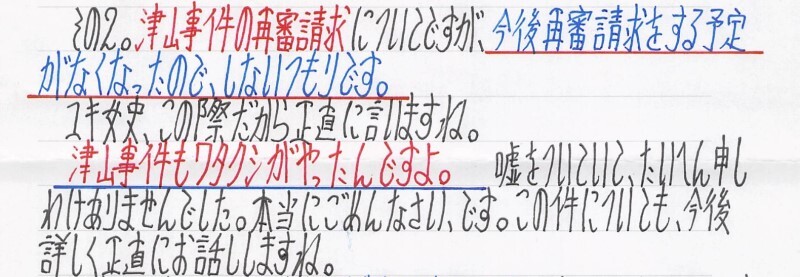 その2。津山事件の再審請求についてですが、今後再審請求をする予定
がなくなったので、しないつもりです。
ユキ女史、この際だから正直に言いますね。
津山事件もワタクシがやったんですよ。　嘘をついていて、たいへん申し
わけありませんでした。本当にごめんなさい、です。この件についても、今後
詳しく正直にお話ししますね。